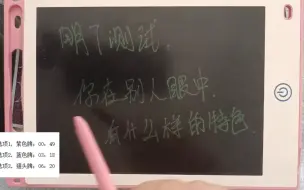 明了测试.
你在别人眼中.
有什么样的特色.
选项1、紫色牌：00：49
选项2、蓝色牌：03：18
选项3、镜头牌：06：20